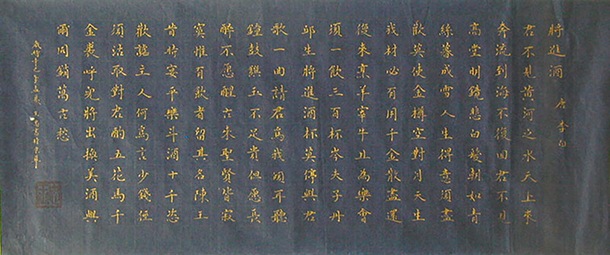 將進酒 唐 李白
君不見黃河之水天上來
奔流到海不復回君不見
高堂明鏡悲白髮朝如青
絲暮成雪人生得意須盡
歡莫使金樽空對月天生
我材必有用千金散盡還
復來烹羊宰牛且為樂會
須一飲三百杯岑夫子丹
邱生將進酒杯莫停與君
歌一曲請君為我傾耳聽
鐘鼓饌玉不足貴但願長
醉不願醒古來聖賢皆寂
寞惟有飲者留其名陳王
昔時宴平樂斗酒十千恣
歡謔主人何為言少錢徑
須沽取對君酌五花馬千
金裘呼兒將出換美酒與
爾同銷萬古愁